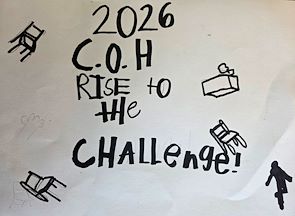 2026
C.O.H
RISE to
tHe
CHALLenge!